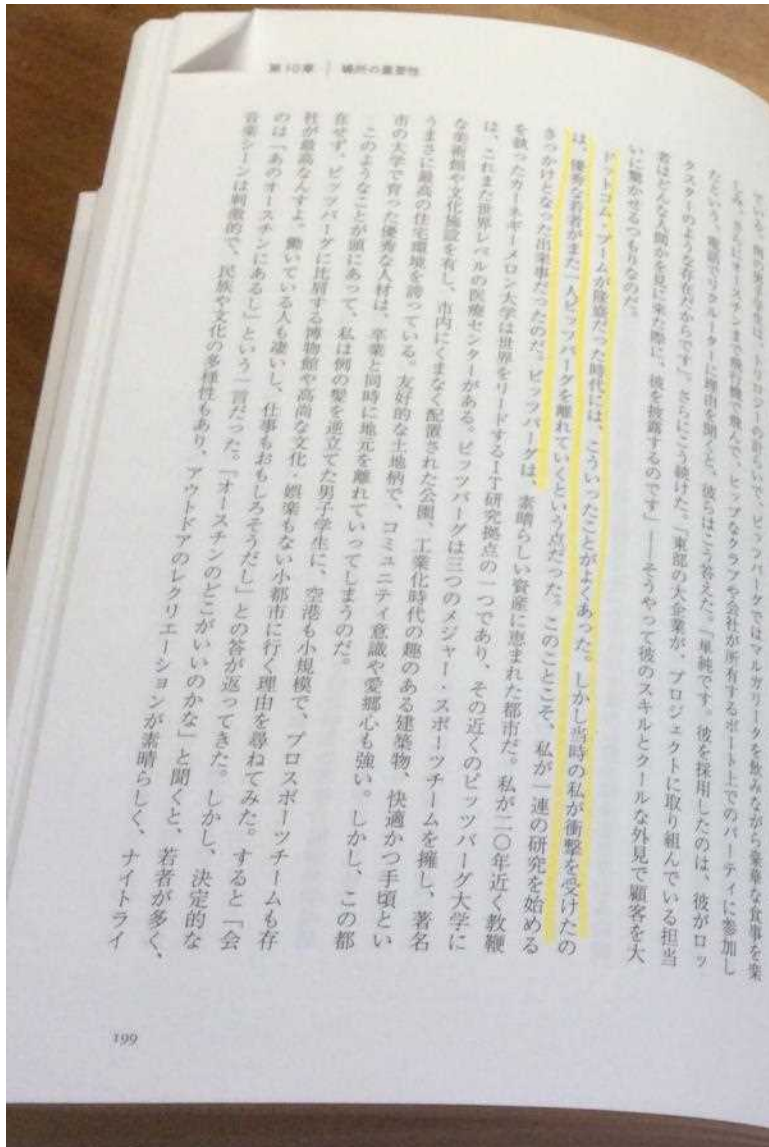 第10章 | 場所の重要性
しみ、さらにオースチンまで飛行機で飛んで、ヒップなクラブや会社が所有するボート上でのパーティに参加し
たという。電話でリクルーターに理由を聞くと、彼らはこう答えた。「単純です。彼を採用したのは、彼がロッ
クスターのような存在だからです」。さらにこう続けた。「東部の大企業が、プロジェクトに取り組んでいる担当
者はどんな人間かを見に来た際に、彼を披露するのです」――そうやって彼のスキルとクールな外見で顧客を大
いに驚かせるつもりなのだ。
ドットコム・ブームが隆盛だった時代には、こういったことがよくあった。しかし当時の私が衝撃を受けたの
は、優秀な若者がまた一人ピッツバーグを離れていくという点だった。このことこそ、私が一連の研究を始める
きっかけとなった出来事だったのだ。ピッツバーグは、素晴らしい資産に恵まれた都市だ。私が二〇年近く教鞭
を執ったカーネギーメロン大学は世界をリードするIT研究拠点の一つであり、その近くのピッツバーグ大学に
は、これまた世界レベルの医療センターがある。ピッツバーグは三つのメジャー・スポーツチームを擁し、著名
な美術館や文化施設を有し、市内にくまなく配置された公園、工業化時代の趣のある建築物、快適かつ手頃とい
うまさに最高の住宅環境を誇っている。友好的な土地柄で、コミュニティ意識や愛郷心も強い。しかし、この都
市の大学で育った優秀な人材は、卒業と同時に地元を離れていってしまうのだ。
このようなことが頭にあって、私は例の髪を逆立てた男子学生に、空港も小規模で、プロスポーツチームも存
在せず、ピッツバーグに比肩する博物館や高尚な文化・娯楽もない小都市に行く理由を尋ねてみた。すると「会
社が最高なんすよ。働いている人も凄いし、仕事もおもしろそうだし」との答が返ってきた。しかし、決定的な
のは「あのオースチンにあるし」という一言だった。「オースチンのどこがいいのかな」と聞くと、若者が多く、
音楽シーンは刺激的で、民族や文化の多様性もあり、アウトドアのレクリエーションが素晴らしく、ナイトライ
199